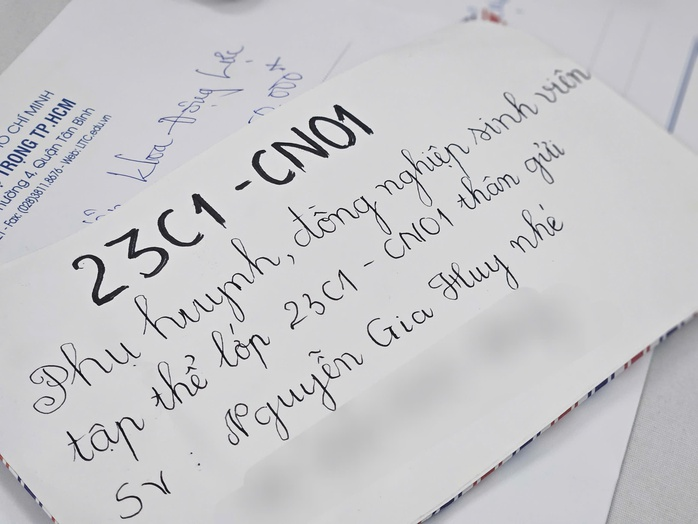 HỒ CHÍ MINH
TRỌNG TP.HCM
Phường 4, Quận Tân Bình
Fax: (028)3811.8676 - Web: LTTC.edu.vn
Khoa Động Lực
23C1 - CN01
Phụ huynh, đồng nghiệp sinh viên
tập thể lớp 23C1 - CN01 thân gửi
SV : Nguyễn Gia Huy nhé